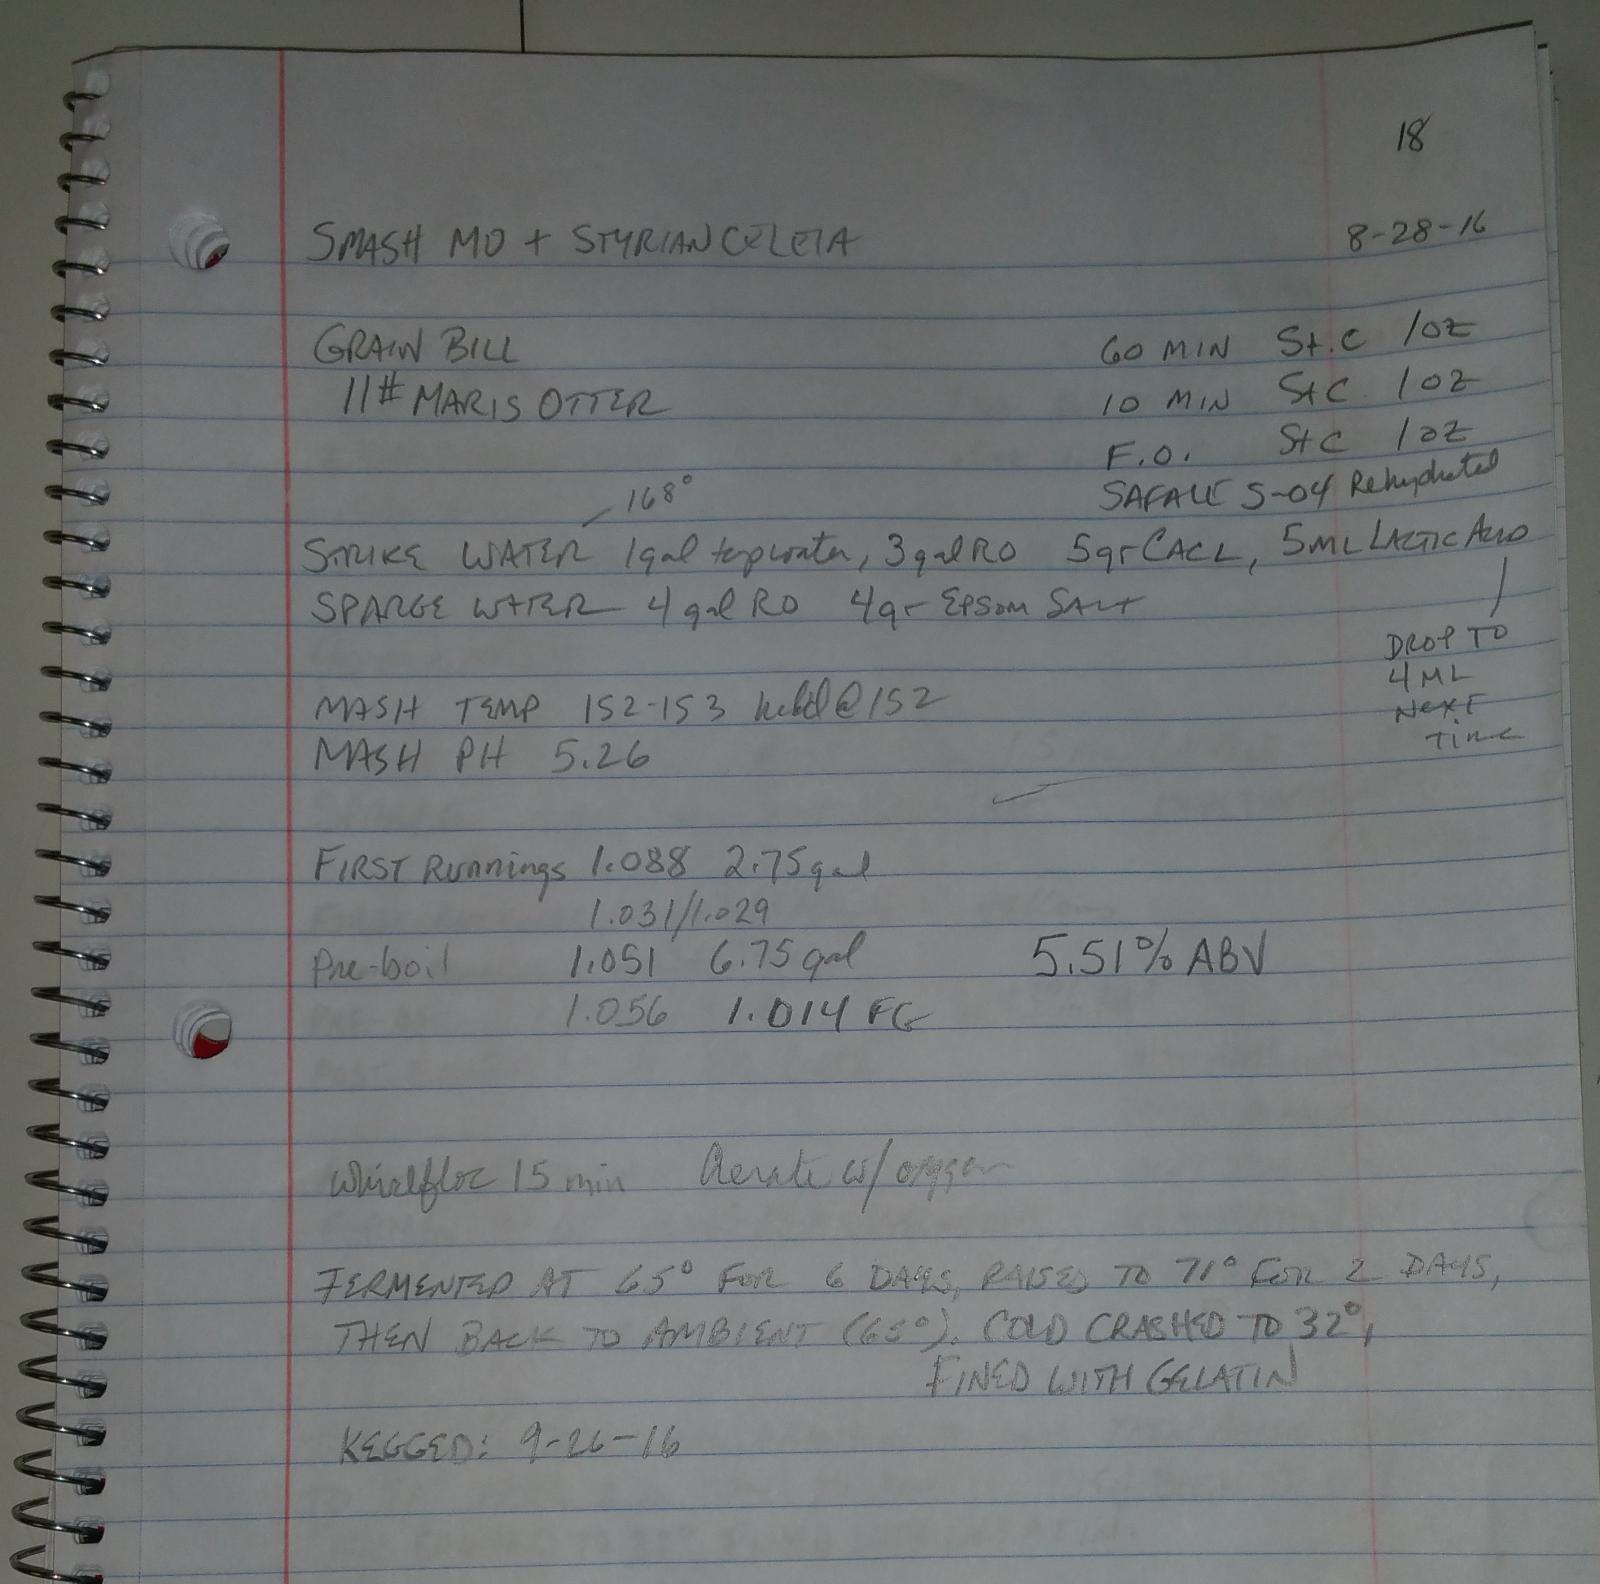 18
SMASH MO + STYRIAN CELEIA
8-28-16
GRAIN BILL
11# MARIS OTTER
60 MIN St.C 1oz
10 MIN StC 1oz
F.O. StC 1oz
SAFALE S-04 Rehydrated
168°
STRIKE WATER 1gal tapwater, 3galRO 5gr CACL, 5ML LACTIC ACID
SPARGE WATER 4galRO 4gr EPSOM SALT
DROP TO
4 ML
NEXT
TIME
MASH TEMP 152-153 held@152
MASH PH 5.26
FIRST Runnings 1.088 2.75gal
1.031/1.029
Pre-boil 1.051 6.75gal 5.51% ABV
1.056 1.014 FG
Whirlfloc 15 min Aerate w/ oxygen
FERMENTED AT 65° FOR 6 DAYS, RAISED TO 71° FOR 2 DAYS,
THEN BACK TO AMBIENT (65°). COLD CRASHED TO 32°,
FINED WITH GELATIN
KEGGED: 9-26-16